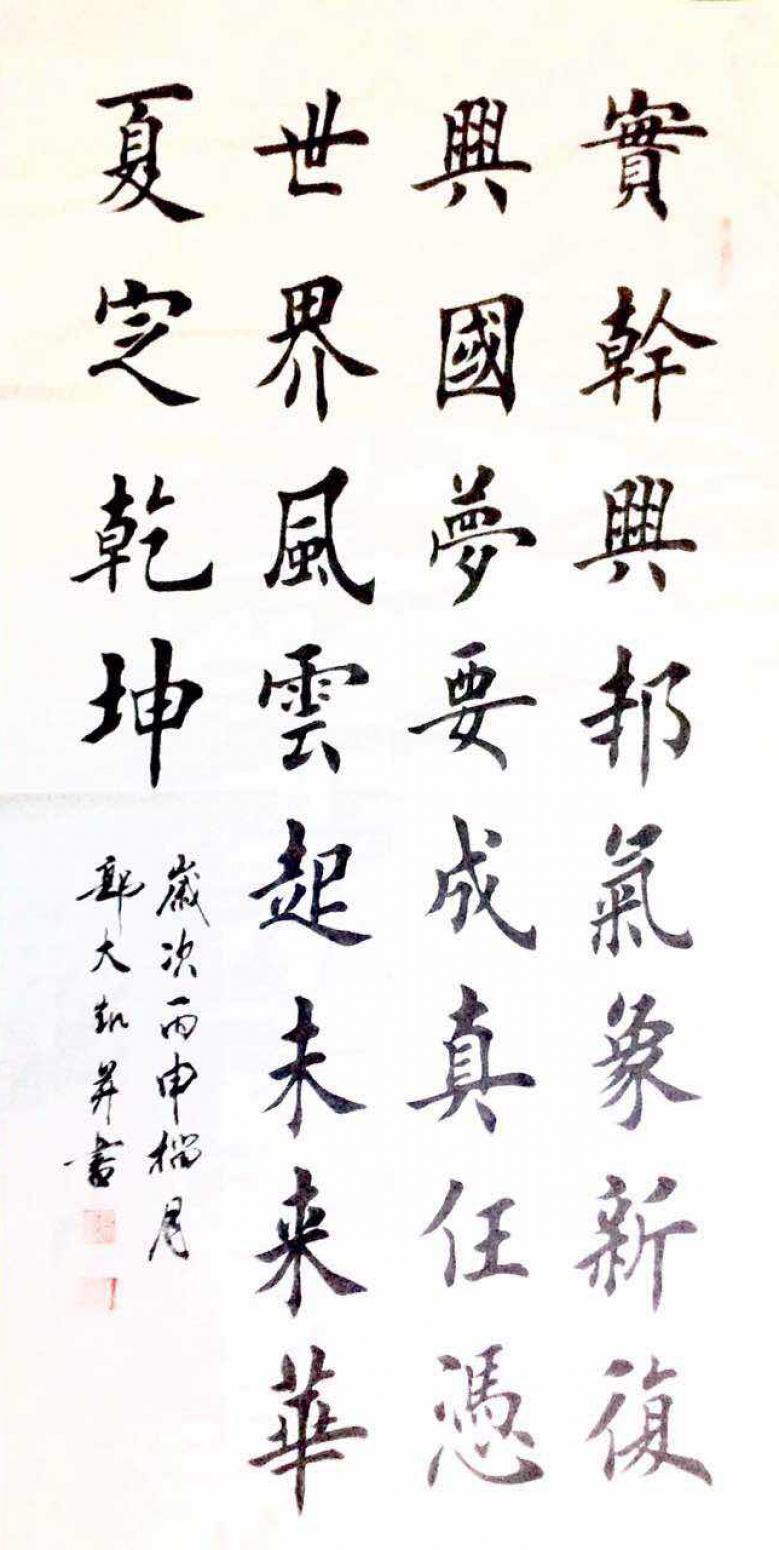 實幹興邦氣象新復
興國夢要成真任憑
世界風雲起未来華
夏定乾坤
歲次丙申榴月
鄭大凱并書